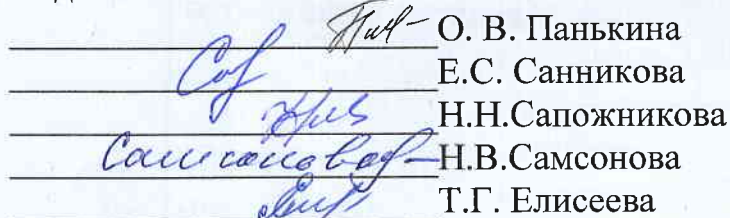 О. В. Панькина
Е.С. Санникова
Н.Н.Сапожникова
Самсонова Н.В.Самсонова
Т.Г. Елисеева